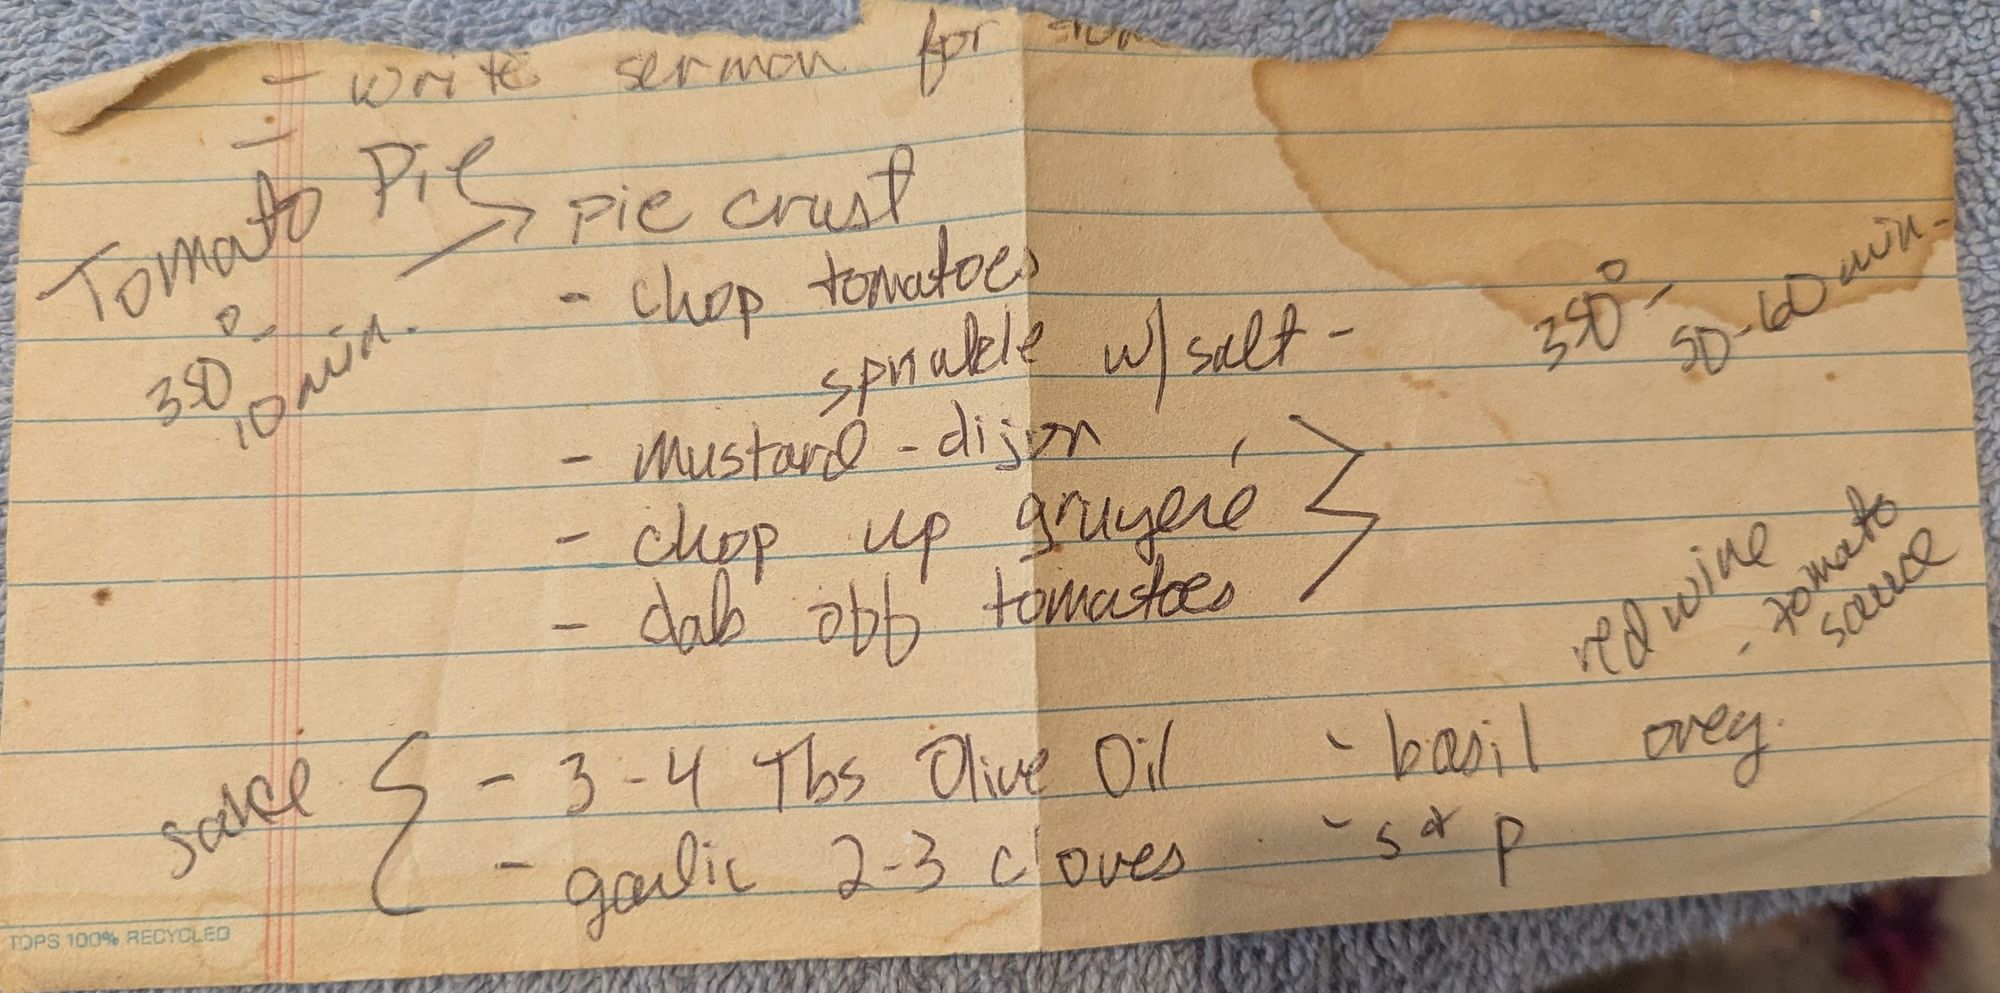 - write sermon for
-
Tomato Pie
350° -
10 min.
pie crust
- chop tomatoes
sprinkle w/ salt -
350° -
50-60 min.
- mustard - dijon
- chop up gruyere
- dab off tomatoes
red wine
- tomato
sauce
sauce
- 3-4 Tbs Olive Oil
- basil oreg.
- garlic 2-3 cloves
- s + p
TOPS 100% RECYCLED